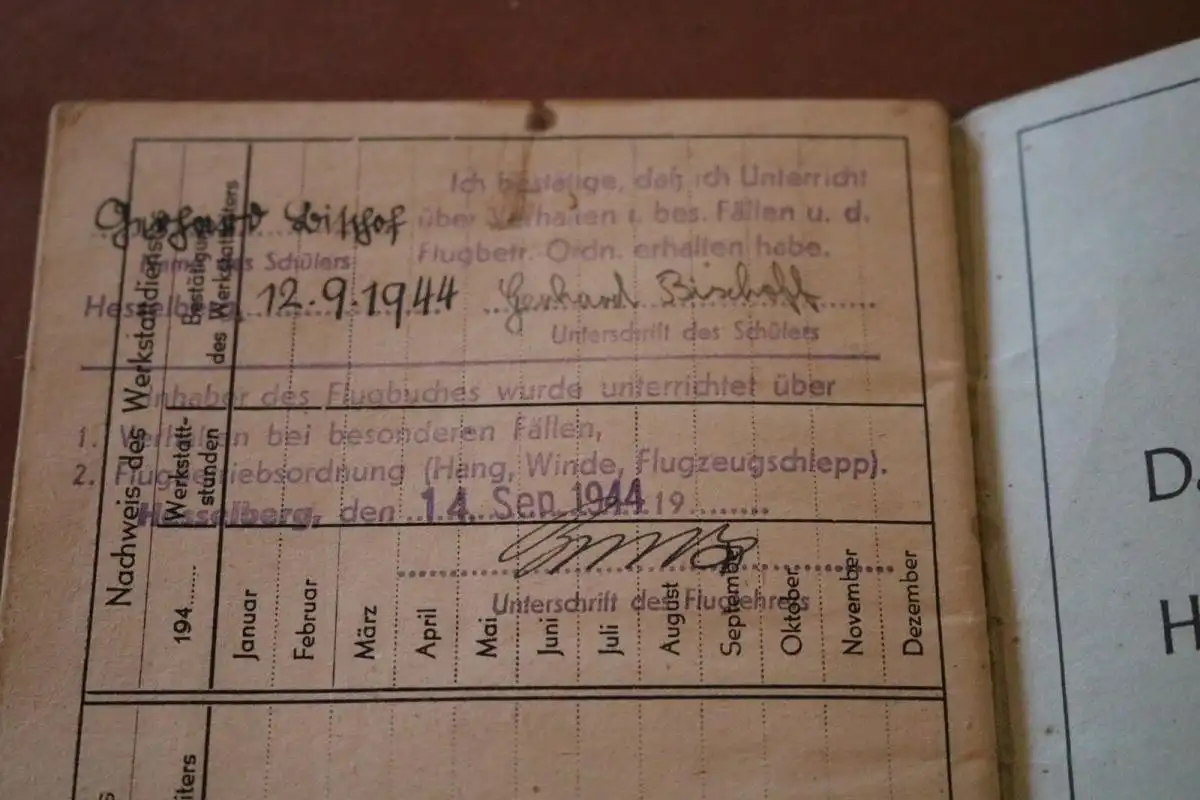 Ich bestätige, daß ich Unterricht
über Verhalten i. bes. Fällen u. d.
Flugbetr. Ordn. erhalten habe.
Gerhard Bischof
Name des Schülers
Hesselberg, 12.9.1944 Gerhard Bischoff
Unterschrift des Schülers
Inhaber des Flugbuches wurde unterrichtet über
1. Verhalten bei besonderen Fällen,
2. Flugbetriebsordnung (Hang, Winde, Flugzeugschlepp).
Hesselberg, den 14. Sep. 1944 19
Unterschrift des Fluglehrers
Nachweis des Werkstattdienstes
194
Werkstatt-
stunden
Bestätigung
des Werkstattleiters
Januar
Februar
März
April
Mai
Juni
Juli
August
September
Oktober
November
Dezember
s
iters
D.
H